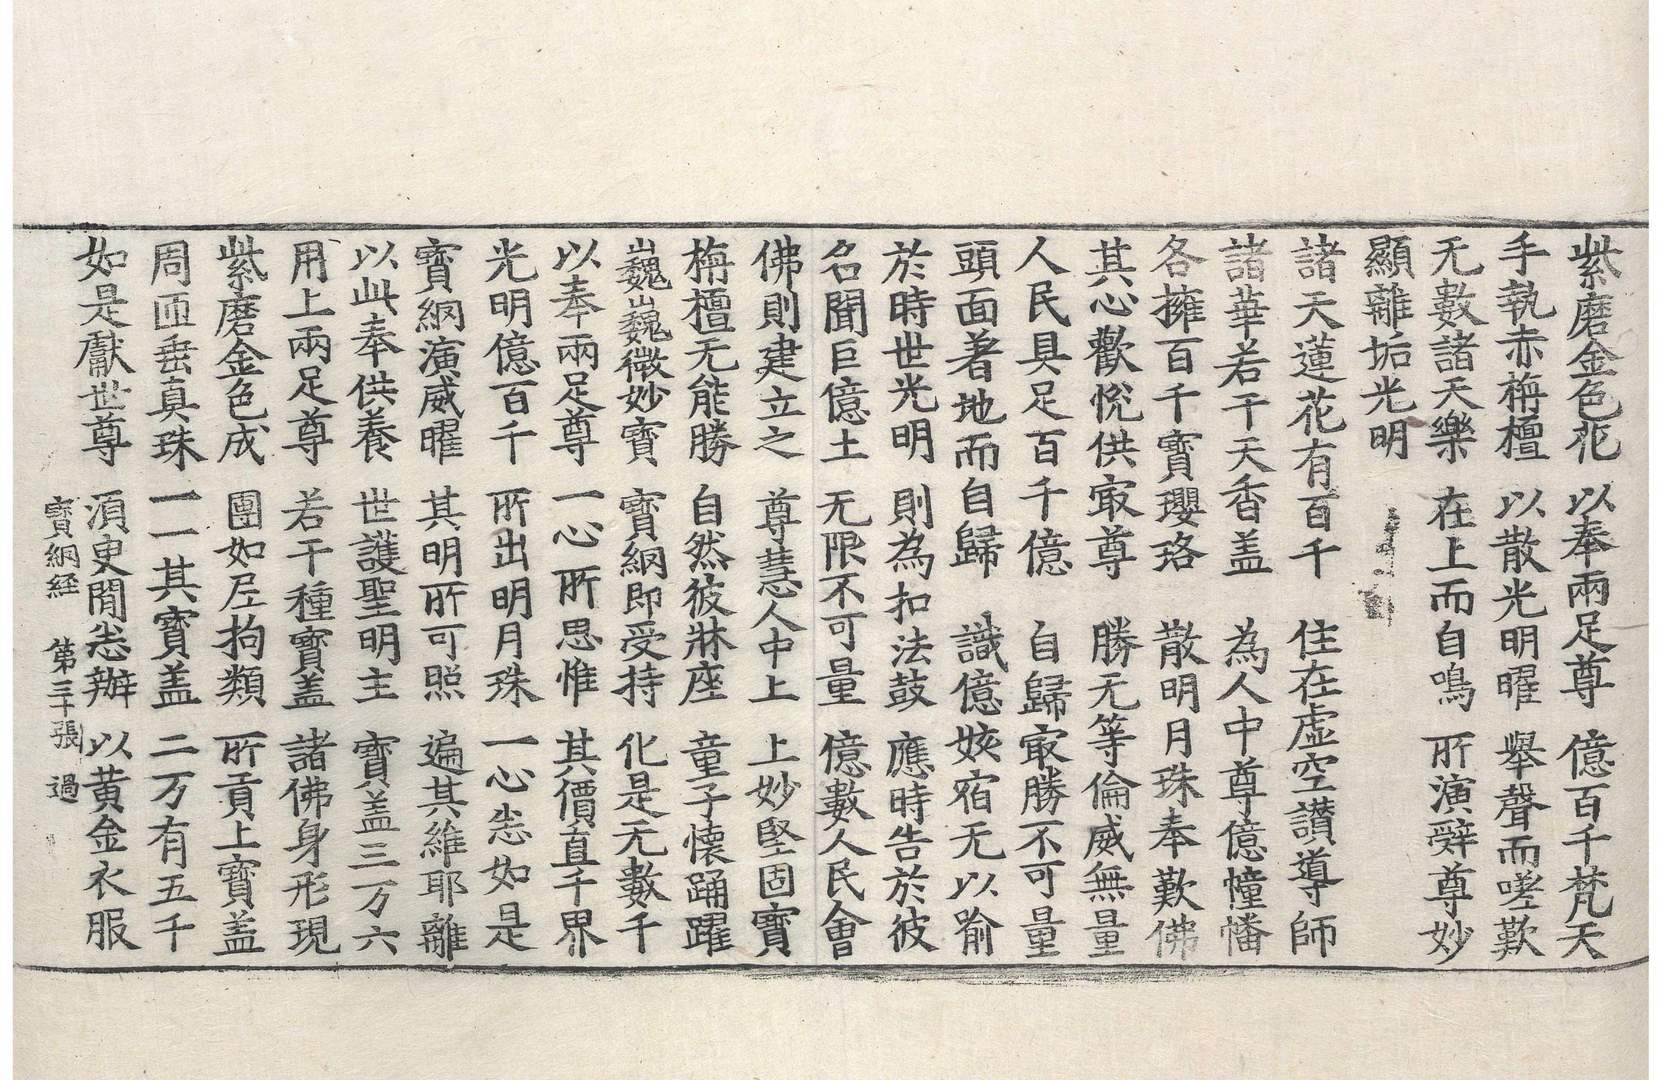 紫磨金色花 以奉兩足尊 億百千梵天
手執赤栴檀 以散光明曜 舉聲而嗟歎
无數諸天樂 在上而自鳴 所演辭尊妙
顯離垢光明
諸天蓮花有百千 住在虛空讃導師
諸華若干天香盖 為人中尊億幢幡
各擁百千寶瓔珞 散明月珠奉歎佛
其心歡悅供㝡尊 勝无等倫威無量
人民具足百千億 自歸㝡勝不可量
頭面著地而自歸 識億姟宿无以喻
於時世光明 則為扣法鼓 應時告於彼
名聞巨億土 无限不可量 億數人民會
佛則建立之 尊慧人中上 上妙堅固寶
栴檀无能勝 自然彼牀座 童子懷踊躍
巍巍微妙寶 寶網即受持 化是无數千
以奉兩足尊 一心所思惟 其價直千界
光明億百千 所出明月珠 一心悉如是
寶網演威曜 其明所可照 遍其維耶離
以此奉供養 世護聖明主 寶盖三万六
用上兩足尊 若干種寶盖 諸佛身形現
紫磨金色成 團如𡰱拘類 所貢上寶盖
周匝垂真珠 一一其寶盖 二万有五千
如是獻世尊 湏臾閒悉辦 以黃金衣服
寶網経 第三十張 過